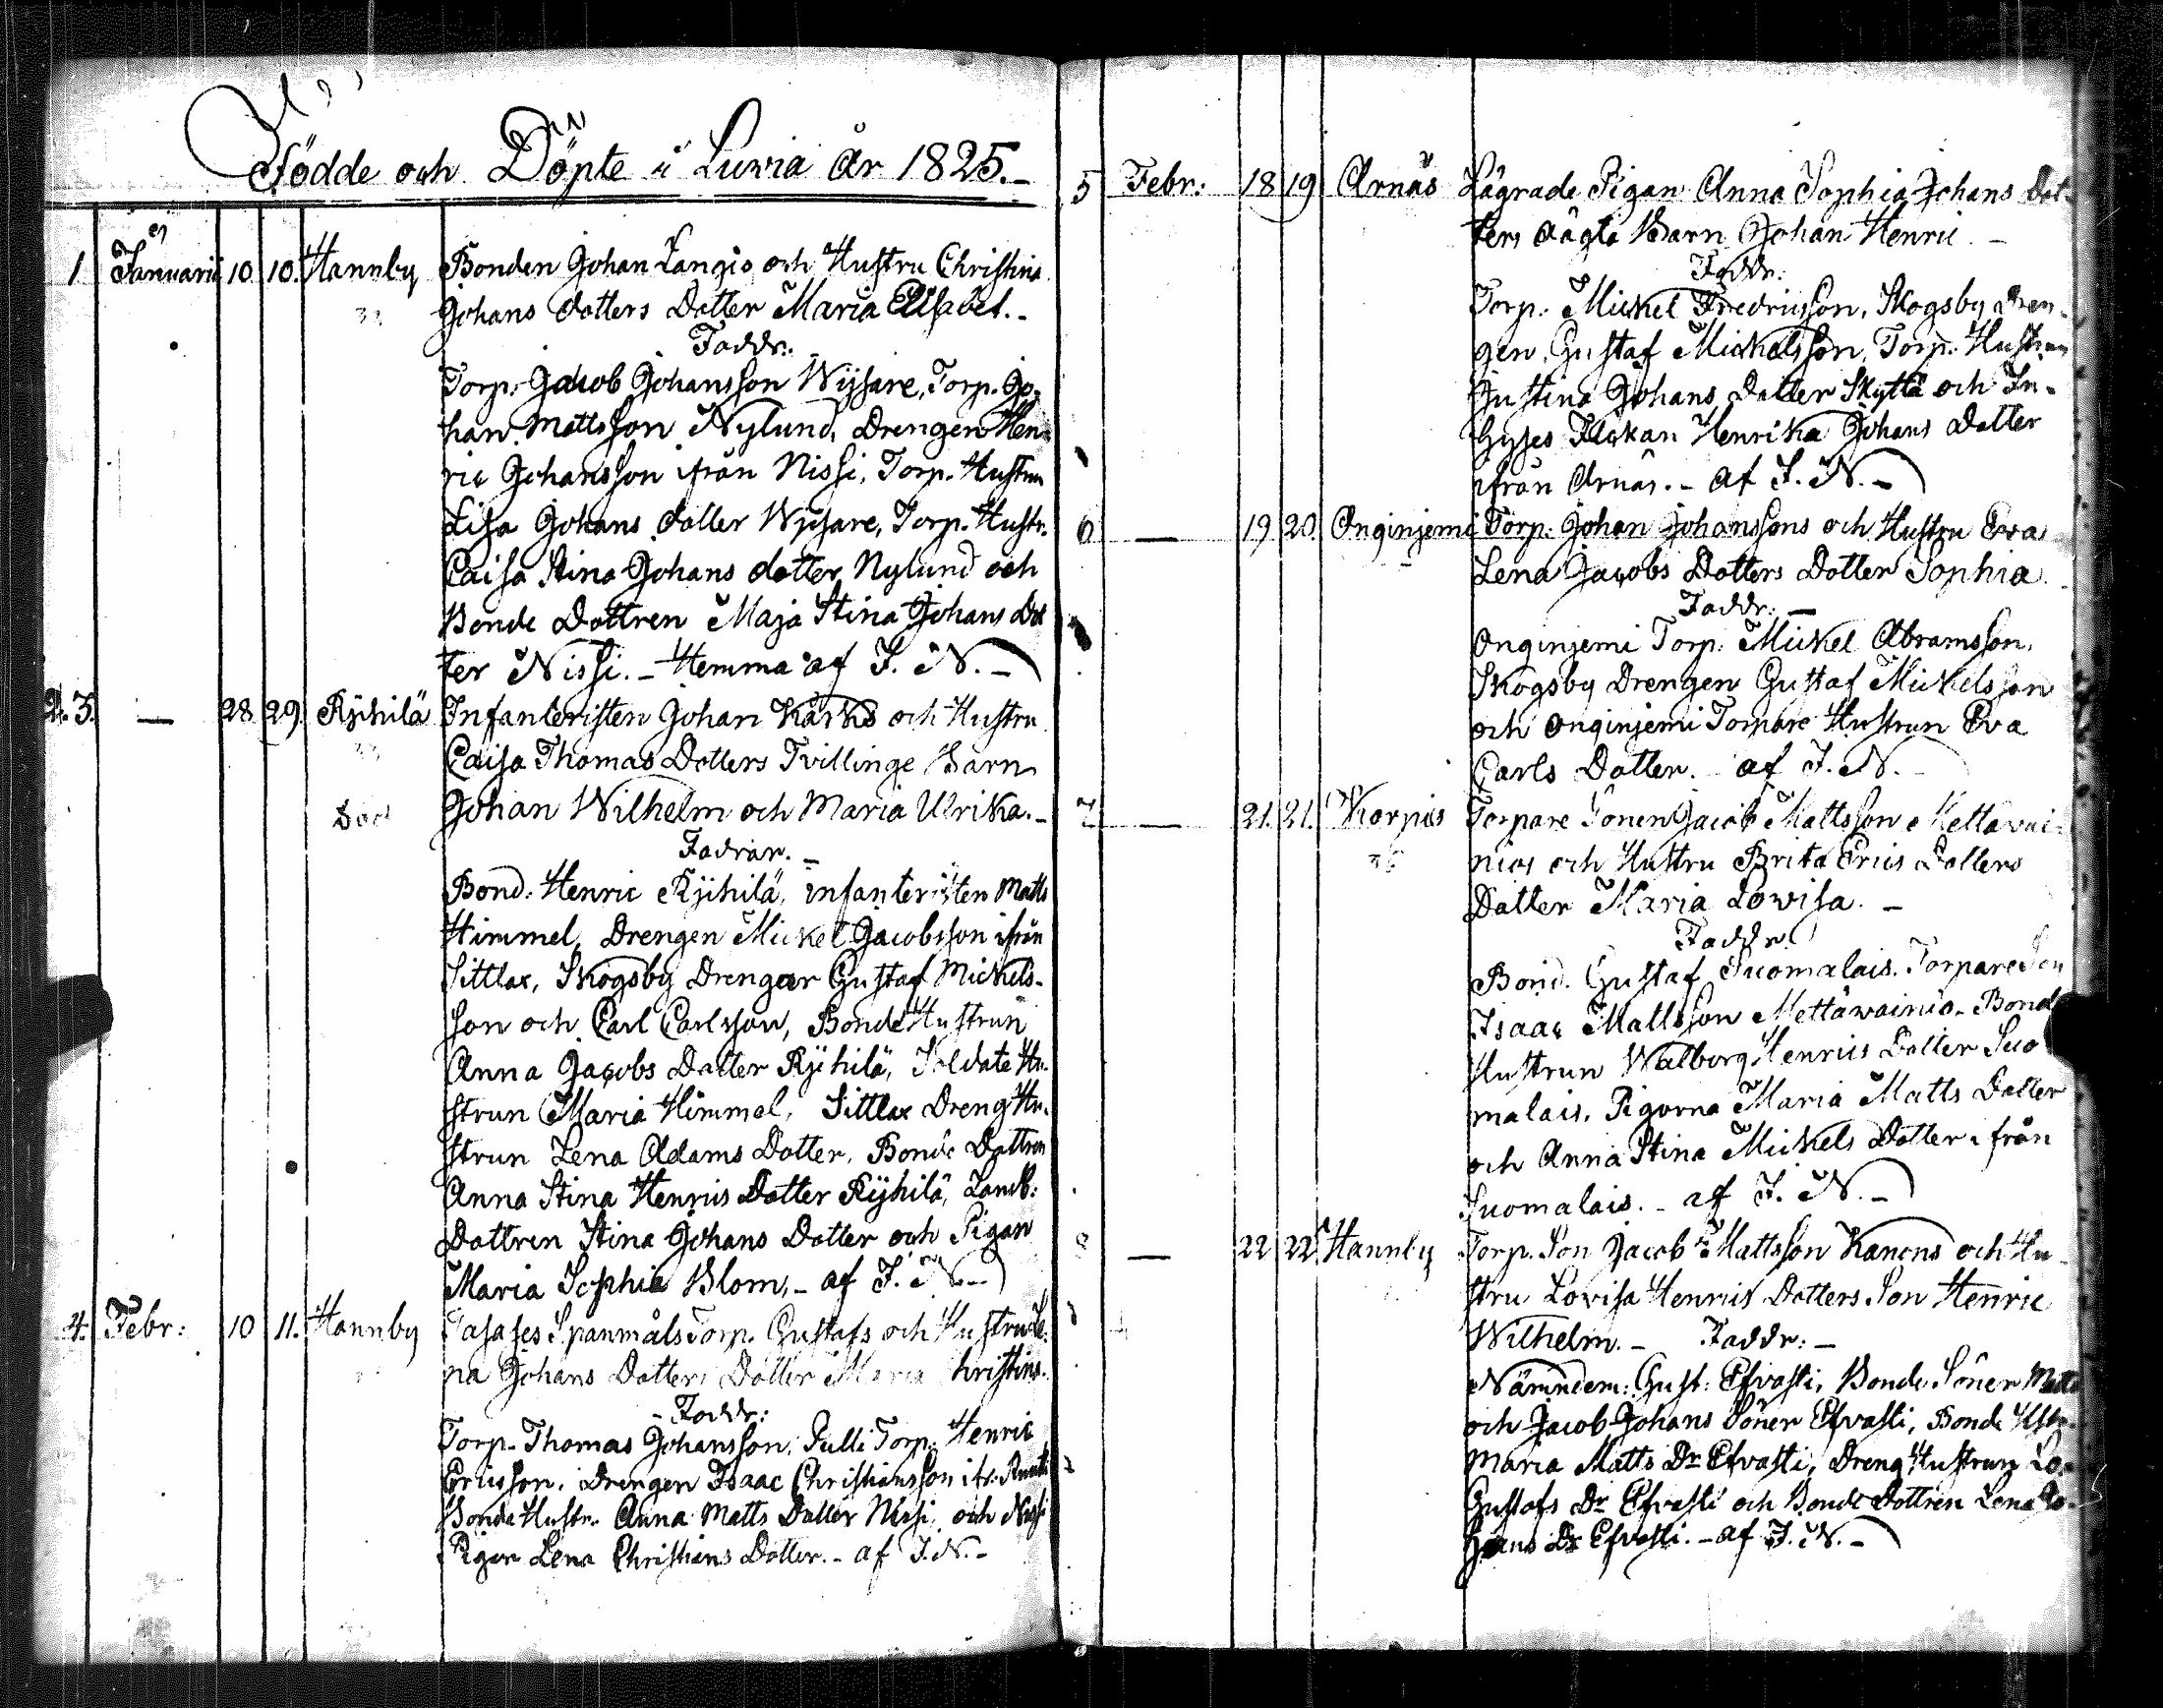 Födde och Döpte i Luvia år 1825.
1. Januarii 10 10. Hannby Bonden Johan Langis och Hustru Christina
Johans dotters Dotter Maria Elisabet.
Faddr:
Torp: Jacob Johansson Wijsare, Torp. Jo-
han Mattsson Nylund, Drengen Hen-
ric Johansson ifrån Nissi, Torp. Hustrun
Lisa Johans dotter Wijsare, Torp. Hustr.
Caisa Stina Johans dotter Nylund och
Bonde Dottren Maja Stina Johans Dot
ter Nissi. - Hemma af J. N. -
2. 3. — 28 29. Rijhilä Infanteristen Johan Karhs och Hustru
Caisa Thomas Dotters Tvillinge Barn
Död Johan Wilhelm och Maria Ulrika. -
Fadrar. -
Bond: Henric Rijhilä, infanteristen Matts
Himmel, Drengen Mickel Jacobsson ifrån
Sittlax, Skogsby Drengar Gustaf Mickels-
son och Carl Carlsson, Bonde Hustrun
Anna Jacobs Dotter Rijhilä, Soldate Hu-
strun Maria Himmel, Sittlax Dreng Hu-
strun Lena Adams Dotter, Bonde Dottren
Anna Stina Henrics Dotter Rijhilä, Landb:
Dottren Stina Johans Dotter och Pigan
Maria Sophia Blom, - af J. N. -
4. Febr: 10 11. Hannby Spanmåls Torp. Gustafs och Hustru Le-
na Johans Dotters Dotter Maria Christina.
- Faddr:
Torp. Thomas Johansson, Pulli Torp. Henric
Ericsson, Drengen Isaac Christiansson ifr.
Bonde Hustr. Anna Matts Dotter Nissi, och Nissi
Pigan Lena Christians Dotter. - af J. N. -
5 Febr: 18 19 Arnäs Lägrade Pigan Anna Sophia Johans Dot-
ters oägta Barn Johan Henric. -
Faddr:
Torp. Mickel Fredricsson, Skogsby Dren-
gen Gustaf Mickelsson, Torp. Hustrun
Justina Johans Dotter Skyttä och In-
hyses Flickan Henrika Johans Dotter
ifrån Arnäs. - af J. N. -
6 — 19 20 Onginjemi Torp: Johan Johanssons och Hustru Eva
Lena Jacobs Dotters Dotter Sophia
Faddr: -
Onginjemi Torp: Mickel Abramsson,
Skogsby Drengen Gustaf Mickelsson
och Onginjemi Torpare Hustrun Eva
Carls Dotter. - af J. N. -
7 — 21. 21. Korpis Torpare Sonen Jacob Mattsson Mettävai-
nios och Hustru Brita Erics Dotters
Dotter Maria Lovisa. -
Faddr.
Bond. Gustaf Suomalais. Torpare Son
Isaac Mattsson Mettäwainio - Bond
Hustrun Walborg Henrics Dotter Suo
malais, Pigorna Maria Matts Dotter
och Anna Stina Mickels Dotter ifrån
Suomalais. - af J. N. -
8 — 22 22 Hannby Torp. Son Jacob Mattsson Kanens och Hu-
stru Lovisa Henrics Dotters Son Henric
Wilhelm. - Faddr: -
Nämndem: Gust: Efvasti, Bonde Söner Matts
och Jacob Johans Söner Efvasti, Bonde Hstr.
Maria Matts Dr Efvasti, Dreng Hustrun
Gustafs Dr Efvasti och Bonde Dottren Lena Jo-
hans Dr Efvasti. - af J. N. -